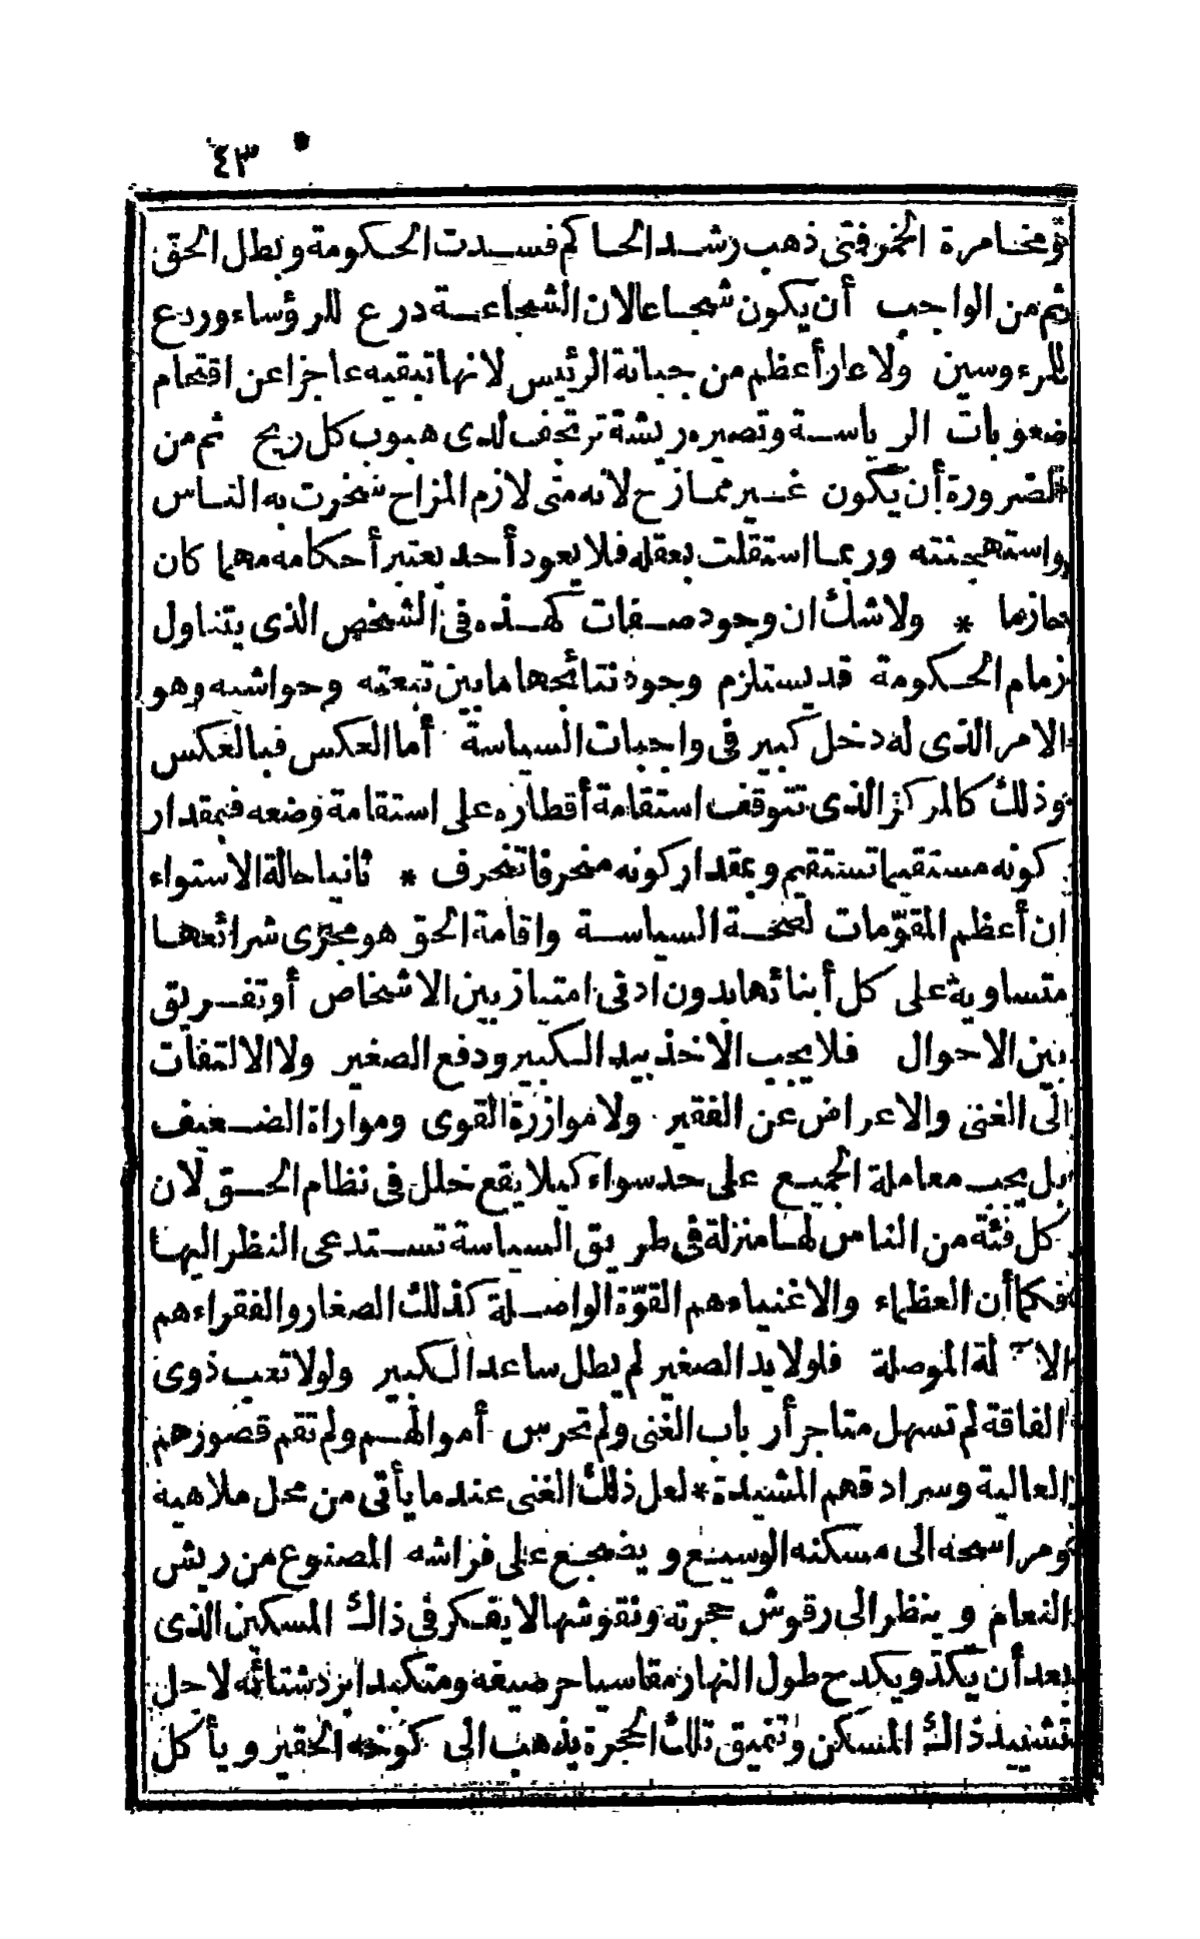 ٤٣
ومخامرة الخمر فتى ذهب رشد الحاكم فسدت الحكومة وبطل الحق
ثم من الواجب أن يكون شجاعا لان الشجاعة درع للرؤساء وردع
للمرءوسين ولا عار أعظم من جبانة الرئيس لانها تبقيه عاجزا عن اقتحام
صعوبات الرياسة وتصيره ريشة ترتجف لدى هبوب كل ريح ثم من
الضرورة أن يكون غير ممازح لانه متى لازم المزاح سخرت به الناس
واستهجنته وربما استقلت بعقله فلا يعود أحد يعتبر أحكامه مهما كان
حازما * ولا شك ان وجود صفات كهذه فى الشخص الذى يتناول
زمام الحكومة قد يستلزم وجود نتائجها ما بين تبعته وحواشيه وهو
الامر الذى له دخل كبير فى واجبات السياسة أما العكس فبالعكس
وذلك كالمركز الذى تتوقف استقامة أقطاره على استقامة وضعه فبمقدار
كونه مستقيما تستقيم وبمقدار كونه منحرفا تنحرف * ثانيا حالة الاستواء
ان أعظم المقوّمات لصحة السياسة واقامة الحق هو مجرى شرائعها
متساوية على كل أبنائها بدون ادنى امتياز بين الاشخاص أو تفريق
بين الاحوال فلا يجب الاخذ بيد الكبير ودفع الصغير ولا الالتفات
الى الغنى والاعراض عن الفقير ولا موازرة القوى ومواراة الضعيف
بل يجب معاملة الجميع على حد سواء كيلا يقع خلل فى نظام الحق لان
كل فئة من الناس لها منزلة فى طريق السياسة تستدعى النظر اليها
فكما أن العظماء والاغنياء هم القوّة الواصلة كذلك الصغار والفقراء هم
الا~لة الموصلة فلولا يد الصغير لم يطل ساعد الكبير ولولا تعب ذوى
الفاقة لم تسهل متاجر أرباب الغنى ولم تحرس أموالهم ولم تقم قصورهم
العالية وسرادقهم المشيدة * لعل ذلك الغنى عندما يأتى من محل ملاهيه
ومراسحه الى مسكنه الوسيع ويضجع على فراشه المصنوع من ريش
النعام وينظر الى رقوش حجرته ونقوشها لا يفكر فى ذاك المسكين الذى
بعد أن يكد ويكدح طول النهار مقاسيا حر صيفه ومتكبدا برد شتائه لاجل
تشييد ذاك المسكن وتنميق تلك الحجرة يذهب الى كوخه الحقير ويأكل